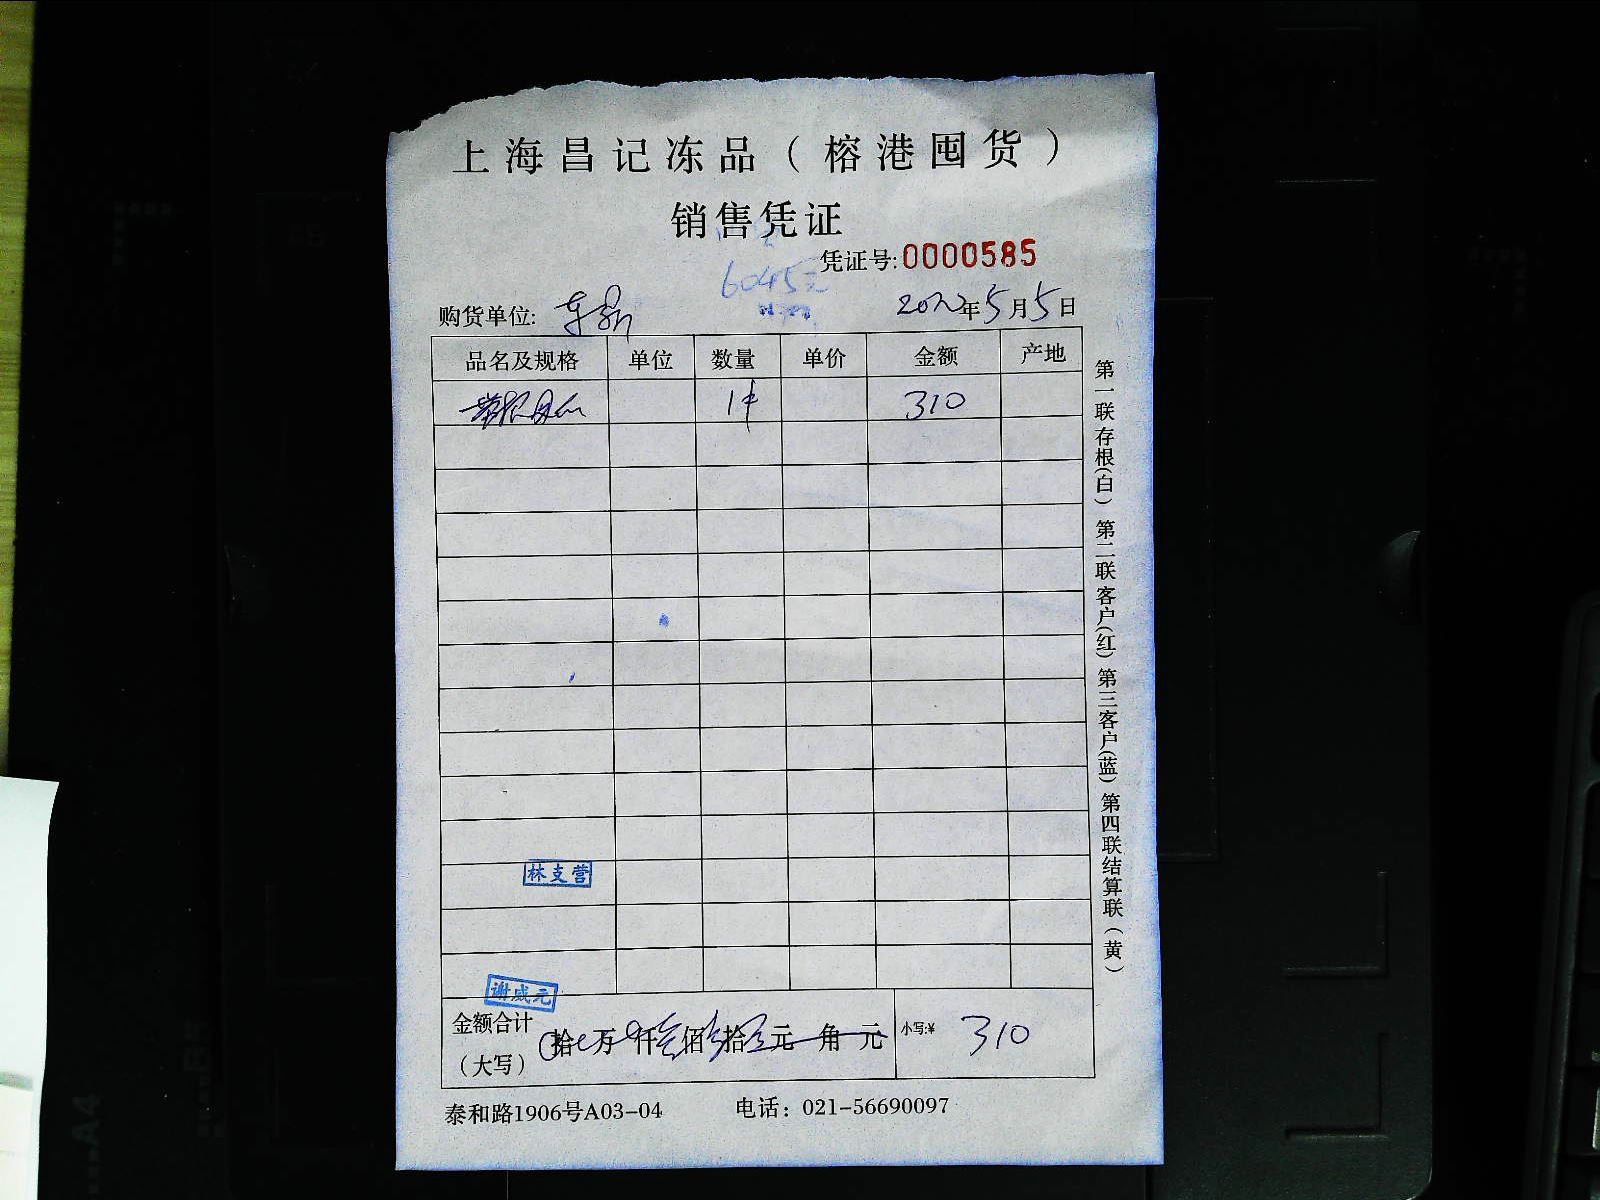 上海昌记冻品（榕港囤货）
销售凭证
凭证号:0000585
6045元
购货单位: 2022年5月5日
品名及规格 单位 数量 单价 金额 产地
1件 310
林支营
谢威元
金额合计（大写） 拾 万 仟 叁 佰 拾 元 角 元 小写:¥ 310
泰和路1906号A03-04 电话：021-56690097
第一联存根(白) 第二联客户(红) 第三客户(蓝) 第四联结算联(黄)
A4